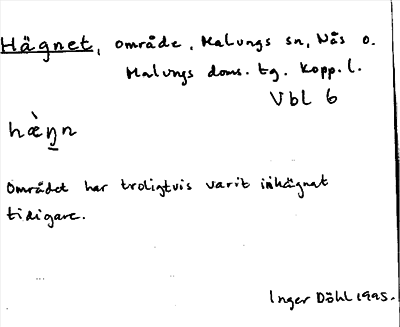 Hägnet, område, Malungs sn, Nås o.
Malungs doms. tg. Kopp. l.
Vbl 6
hæ̀ŋn
Området har troligtvis varit inhägnat
tidigare.
Inger Döhl 1995.